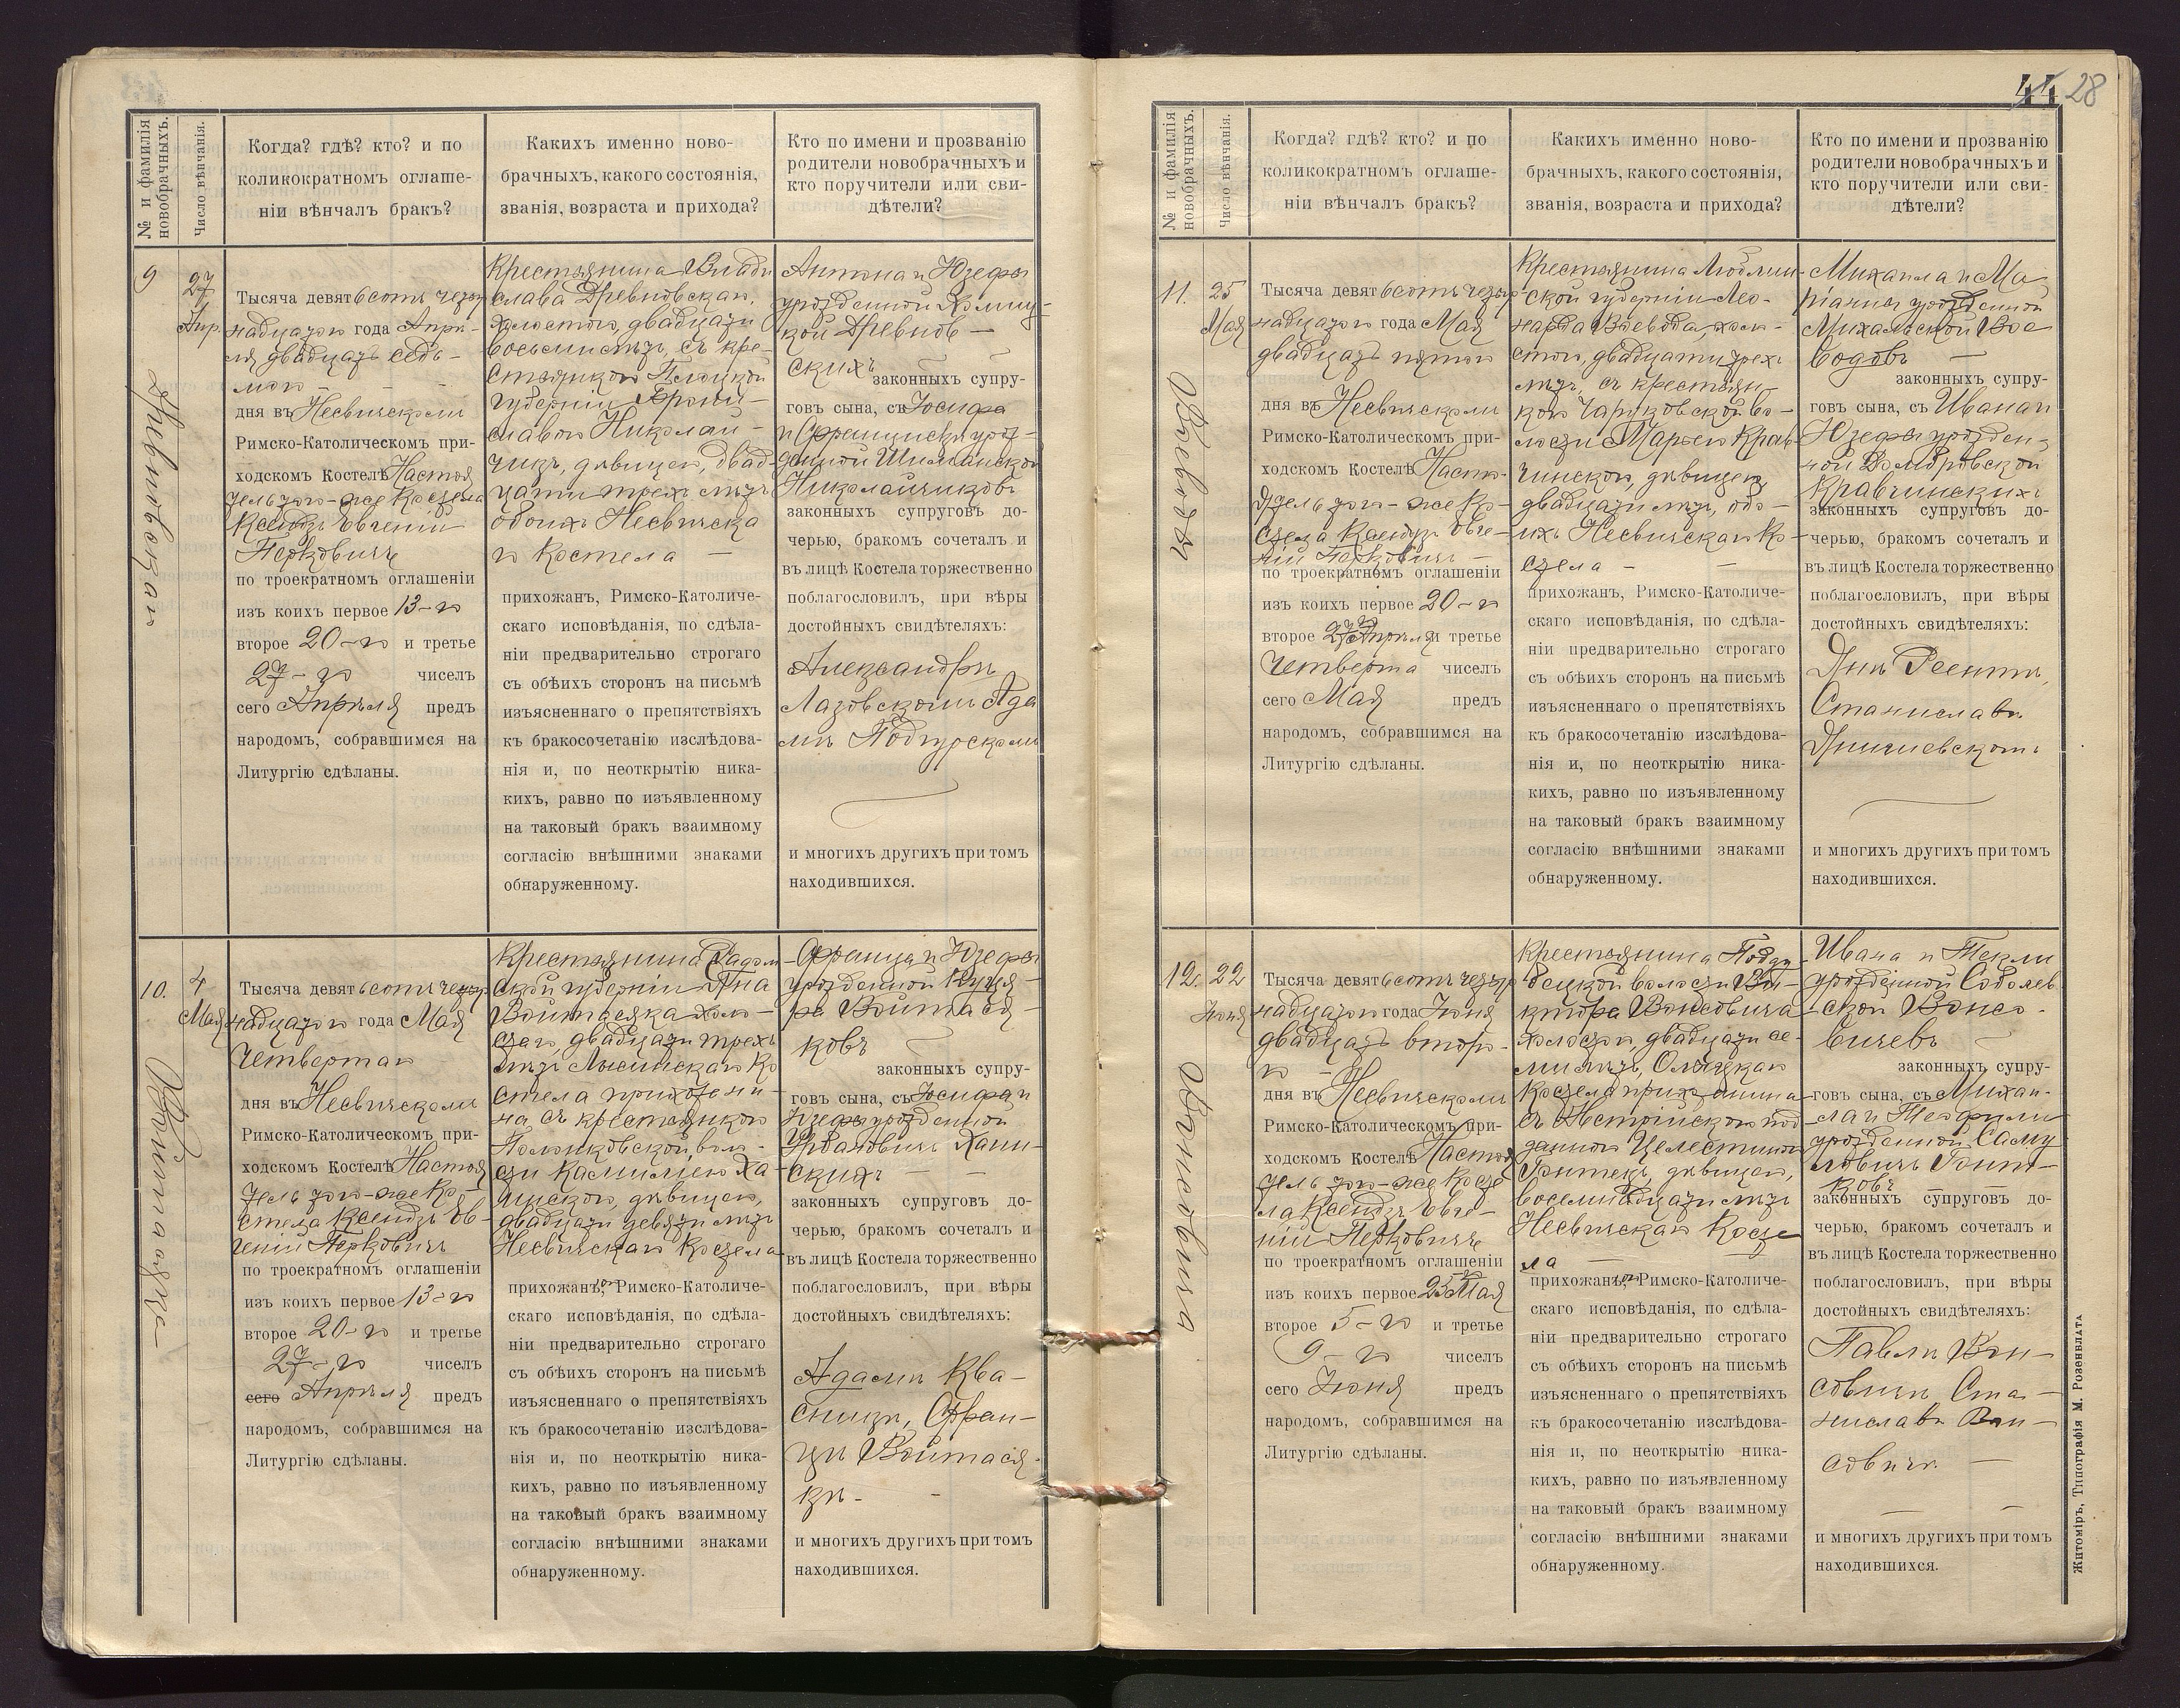 44 28
№ и фамилія новобрачныхъ.
Число вѣнчанія.
Когда? гдѣ? кто? и по
коликократномъ оглаше-
ніи вѣнчалъ бракъ?
Какихъ именно ново-
брачныхъ, какого состоянія,
званія, возраста и прихода?
Кто по имени и прозванію
родители новобрачныхъ и
кто поручители или сви-
дѣтели?
9
27
Апр.
Древновскаго
Тысяча девятьсотъ четыр
надцатого года Апрѣ-
ля двадцать седь-
мого
дня въ Несвичскомъ
Римско-Католическомъ при-
ходскомъ Костелѣ Настоя
тель того-же Костела
Ксендзъ Евгеній
Перковичъ
по троекратномъ оглашеніи
изъ коихъ первое 13-го
второе 20-го и третье
27-го чиселъ
сего Апрѣля предъ
народомъ, собравшимся на
Литургію сдѣланы.
Крестьянина Влади
слава Древновскаго,
холостого, двадцати
восьми лѣтъ, съ кре-
стьянкою Плоцкой
губерніи Брони-
славою Николай-
чикъ, дѣвицею, двад-
цати трехъ лѣтъ
обоихъ Несвичска
го Костела —
прихожанъ, Римско-Католиче-
скаго исповѣданія, по сдѣла-
ніи предварительно строгаго
съ обѣихъ сторонъ на письмѣ
изъясненнаго о препятствіяхъ
къ бракосочетанію изслѣдова-
нія и, по неоткрытію ника-
кихъ, равно по изъявленному
на таковый бракъ взаимному
согласію внѣшними знаками
обнаруженному.
Антона и Юзефы
урожденной
кой Древнов —
скихъ
законныхъ супру-
говъ сына, съ Іосифа
и Франциски урож-
денной Шиманской
Николайчиковъ
законныхъ супруговъ до-
черью, бракомъ сочеталъ и
въ лицѣ Костела торжественно
поблагословилъ, при вѣры
достойныхъ свидѣтеляхъ:
Александръ
Лазовскомъ Ада
мъ Подгурскомъ
и многихъ другихъ при томъ
находившихся.
10.
4
Мая
Войтасяка
Тысяча девятьсотъ четыр
надцатого года Мая
Четвертаго
дня въ Несвичскомъ
Римско-Католическомъ при-
ходскомъ Костелѣ Настоя
тель того-же Ко-
стела Ксендзъ Ев-
геній Перковичъ
по троекратномъ оглашеніи
изъ коихъ первое 13-го
второе 20-го и третье
27-го чиселъ
сего Апрѣля предъ
народомъ, собравшимся на
Литургію сдѣланы.
Крестьянина Радом
ской губерніи Яна
Войтасяка холо-
стаго, двадцати трехъ
лѣтъ Лысинскаго Ко
стела прихожани-
на съ крестьянкою
Полонковской воло-
сти Камилiею Ха-
линскою, дѣвицею,
двадцати девяти лѣтъ
Несвичскаго Костела
прихожанъ, Римско-Католиче-
скаго исповѣданія, по сдѣла-
ніи предварительно строгаго
съ обѣихъ сторонъ на письмѣ
изъясненнаго о препятствіяхъ
къ бракосочетанію изслѣдова-
нія и, по неоткрытію ника-
кихъ, равно по изъявленному
на таковый бракъ взаимному
согласію внѣшними знаками
обнаруженному.
Франца и Юзефы
урожденной Куця-
ра Войтася-
ковъ
законныхъ супру-
говъ сына, съ Іосифа и
Юзефы урожденной
Урбановичъ Халин-
скихъ
законныхъ супруговъ до-
черью, бракомъ сочеталъ и
въ лицѣ Костела торжественно
поблагословилъ, при вѣры
достойныхъ свидѣтеляхъ:
Адамъ Ква-
сницъ, Фран-
цъ Войтася-
къ
и многихъ другихъ при томъ
находившихся.
№ и фамилія новобрачныхъ.
Число вѣнчанія.
Когда? гдѣ? кто? и по
коликократномъ оглаше-
ніи вѣнчалъ бракъ?
Какихъ именно ново-
брачныхъ, какого состоянія,
званія, возраста и прихода?
Кто по имени и прозванію
родители новобрачныхъ и
кто поручители или сви-
дѣтели?
11.
25
Мая
Воевода
Тысяча девятьсотъ четыр-
надцатого года Мая
двадцать пятого
дня въ Несвичскомъ
Римско-Католическомъ при-
ходскомъ Костелѣ Насто-
ятель того-же Ко-
стела Ксендзъ Евге-
ній Перковичъ
по троекратномъ оглашеніи
изъ коихъ первое 20-го
второе 27го Апрѣля и третье
Четверта чиселъ
сего Мая предъ
народомъ, собравшимся на
Литургію сдѣланы.
Крестьянина Люблин-
ской губерніи Лео-
нарда Воевода, холо-
стого, двадцати трехъ
лѣтъ, съ крестьян-
кою Чаруковской во-
лости Марьею Крав-
чинскою, дѣвицею,
двадцати лѣтъ, обо-
ихъ Несвичскаго Ко-
стела
прихожанъ, Римско-Католиче-
скаго исповѣданія, по сдѣла-
ніи предварительно строгаго
съ обѣихъ сторонъ на письмѣ
изъясненнаго о препятствіяхъ
къ бракосочетанію изслѣдова-
нія и, по неоткрытію ника-
кихъ, равно по изъявленному
на таковый бракъ взаимному
согласію внѣшними знаками
обнаруженному.
Михаила и Ма
ріанны урожденной
Михальской Вое
водовъ —
законныхъ супру-
говъ сына, съ Ивана и
Юзефы урожден-
ной Домбровской
Кравчинскихъ
законныхъ супруговъ до-
черью, бракомъ сочеталъ и
въ лицѣ Костела торжественно
поблагословилъ, при вѣры
достойныхъ свидѣтеляхъ:
Янъ
Станиславъ
и многихъ другихъ при томъ
находившихся.
12.
22
Іюня
Вонсовича
Тысяча девятьсотъ четыр
надцатого года Іюня
двадцать второ-
го
дня въ Несвичскомъ
Римско-Католическомъ при-
ходскомъ Костелѣ Настоя
тель того-же Косте
ла Ксендзъ Евге-
ній Перковичъ
по троекратномъ оглашеніи
изъ коихъ первое 25го Мая
второе 5-го и третье
9-го чиселъ
сего Іюня предъ
народомъ, собравшимся на
Литургію сдѣланы.
Крестьянина Подду
бецкой волости Ви-
ктора Вонсовича
холостого, двадцати се-
ми лѣтъ, Олыцкаго
Костела прихожанина
съ Австрійскою под
данною Целестиною
Гонтекъ, дѣвицею,
восемнадцати лѣтъ
Несвичскаго Косте
ла
прихожанъ, Римско-Католиче-
скаго исповѣданія, по сдѣла-
ніи предварительно строгаго
съ обѣихъ сторонъ на письмѣ
изъясненнаго о препятствіяхъ
къ бракосочетанію изслѣдова-
нія и, по неоткрытію ника-
кихъ, равно по изъявленному
на таковый бракъ взаимному
согласію внѣшними знаками
обнаруженному.
Ивана и Текли
урожденной Соболев
ской Вонсо-
вичевъ
законныхъ супру-
говъ сына, съ Михаи-
ла и Теофили
урожденной Саму
ловичъ Гонт-
ковъ
законныхъ супруговъ до-
черью, бракомъ сочеталъ и
въ лицѣ Костела торжественно
поблагословилъ, при вѣры
достойныхъ свидѣтеляхъ:
Павлъ Вон-
совичъ, Ста-
ниславъ Вон-
совичъ —
и многихъ другихъ при томъ
находившихся.
Житоміръ, Типографія М. Розенблата